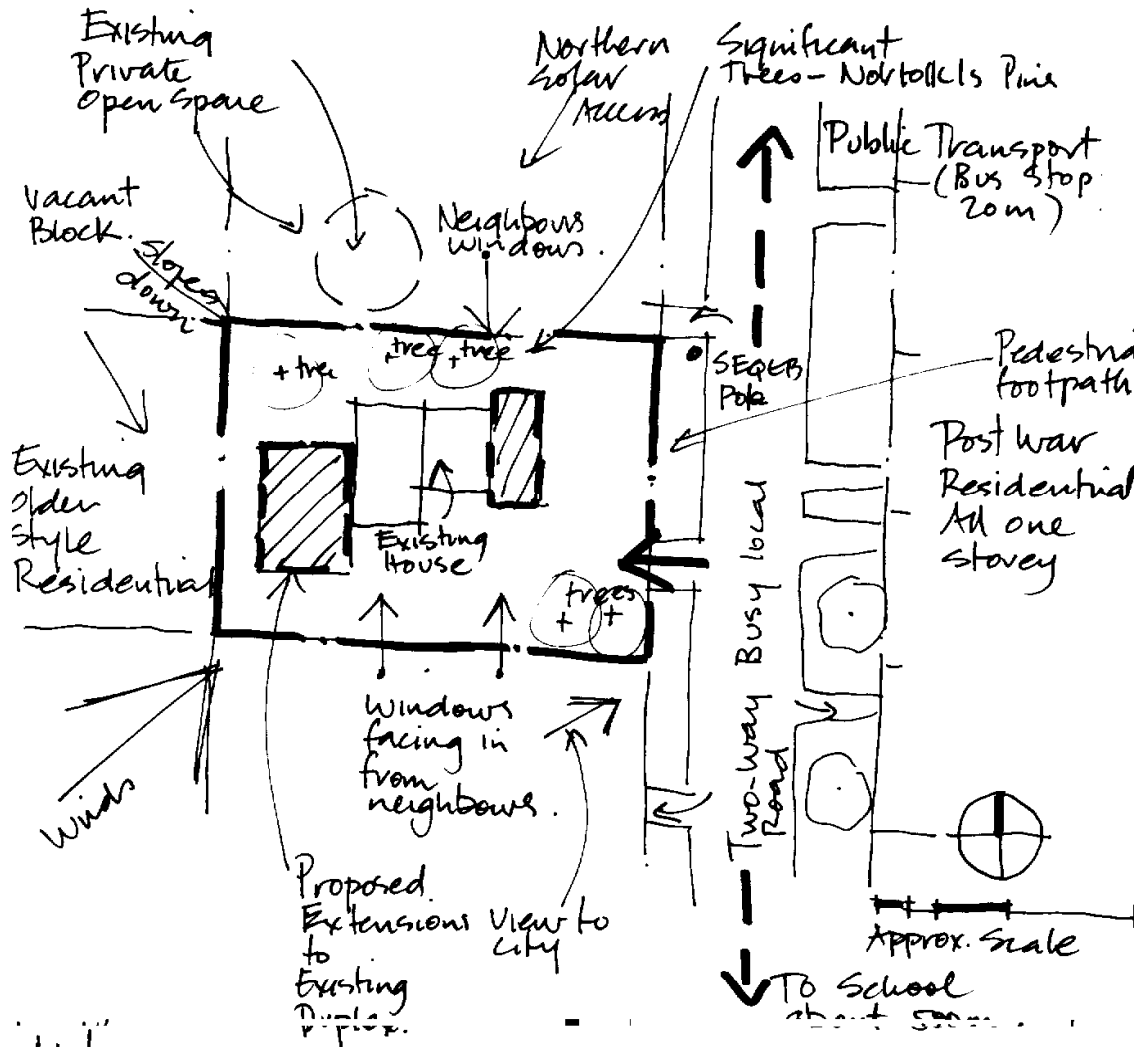 Existing
Private
Open Space
Northern
Solar
Access
Significant
Trees – Norfolk Is Pine
Public Transport
(Bus Stop
20m)
Vacant
Block.
Slopes
down.
Neighbours
Windows.
+ tree
+ tree
+ tree
SEQEB
Pole
Pedestria
footpath
Existing
Older
Style
Residential
Existing
House
Post War
Residential
All one
storey
trees
+ +
Two-way Busy local
Road
Windows
facing in
from
neighbours.
Winds
Proposed
Extensions
to
Existing
Duplex.
View to
City
Approx. Scale
To School
about 500m.